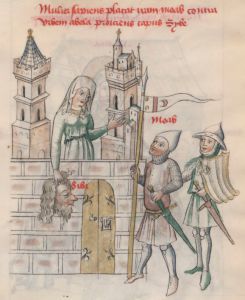 Mulier sapiens placat iram moab contra
Urbem abela proiciens caput Sybe
Moab
Siba